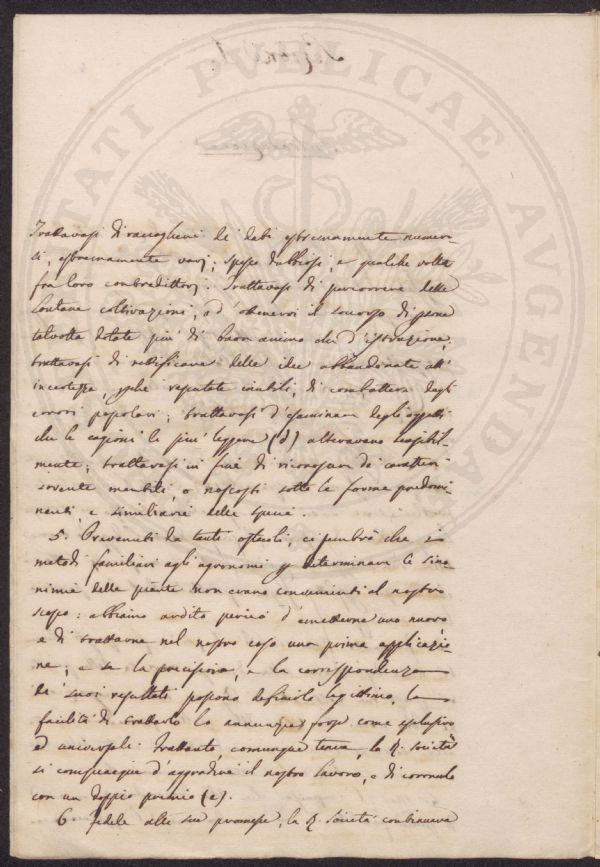 Trattavasi di raccoglieri de' dati estremamente numero-
si, estremamente varj; spesso dubbiosi, e qualche volta
fra loro contredittorj. Trattavasi di percorrere delle
lontane coltivazione, ed ottenervi il soccorso di persone
talvolta dotate più di buon animo che d'istruzione;
trattavasi di rettificare delle idee abbandonate all'
incertezza, perchè reputate inutili, di combattere degli
errori popolari; trattavasi d'esaminare degli oggetti
che le cagioni le più leggere (d) alteravano sensibil-
mente; trattavasi in fine di riconoscere de' caratteri
sovente mutabili, o nascosti sotto le forme predomi-
nanti, e similiarie delle specie.
5. Prevenuti da tanti ostacoli, ci sembrò che i
metodi familiari agli agronomi per determinare le sino-
nimie delle piante non erano convenienti al nostro
scopo: abbiamo ardito perciò d'emetterne uno nuovo
e di trattarne nel nostro caso una prima applicazio-
ne; e se la precisione, e la corrispondenza
de' suoi resultati possono definirlo legittimo, la
facilità di trattarlo lo annunzia forse come esclusivo
ed universale. Trattanto comunque tenue, la R. Società
si compiacque d'aggradire il nostro lavoro, e di coronarlo
con un doppio premio (e).
6. Fedele alle sue promesse, la R. Società continuava